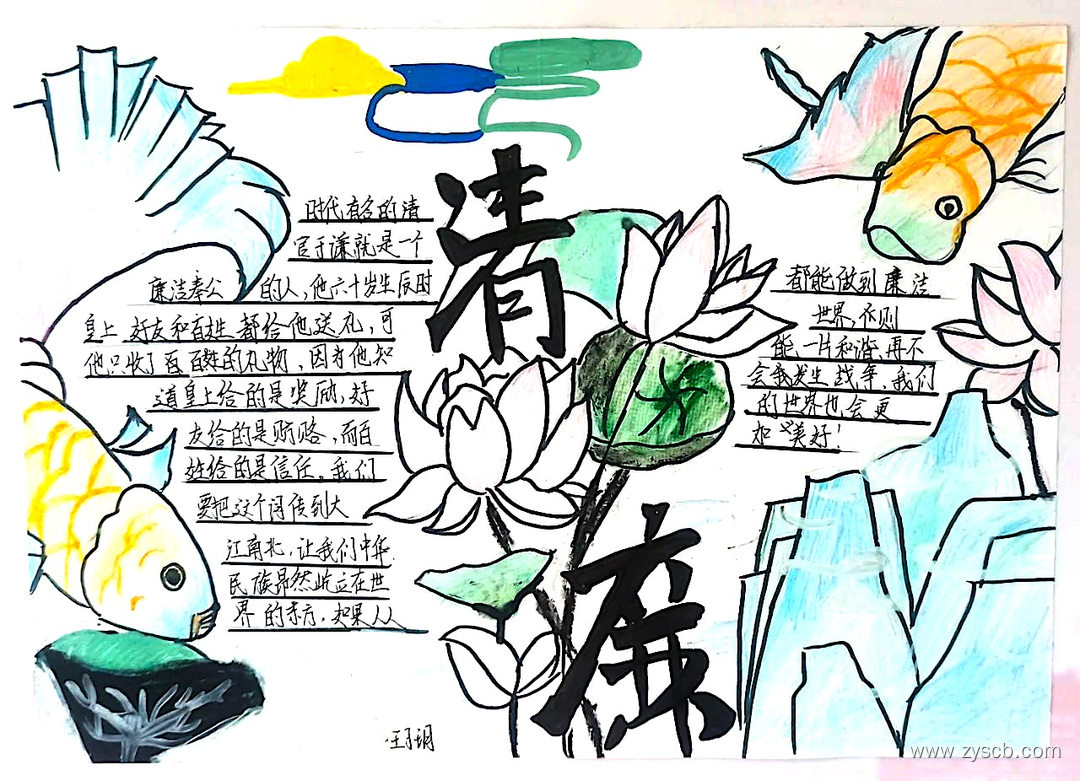 清廉
时代有名的清
官于谦就是一个
廉洁奉公 的人,他六十岁生辰时
皇上 好友和百姓都给他送礼,可
他只收了百 姓的礼物,因为他知
道皇上给的是奖励,好
友给的是贿赂,而百
姓给的是信任。我们
要把这个词传到大
江南北,让我们中华
民族昂然屹立在世
界的东方,如果人人
都能做到廉洁
世界,否则
能,一片和谐,再不
会我发生战争,我们
的世界也会更
加 美好!
www.zyscb.com